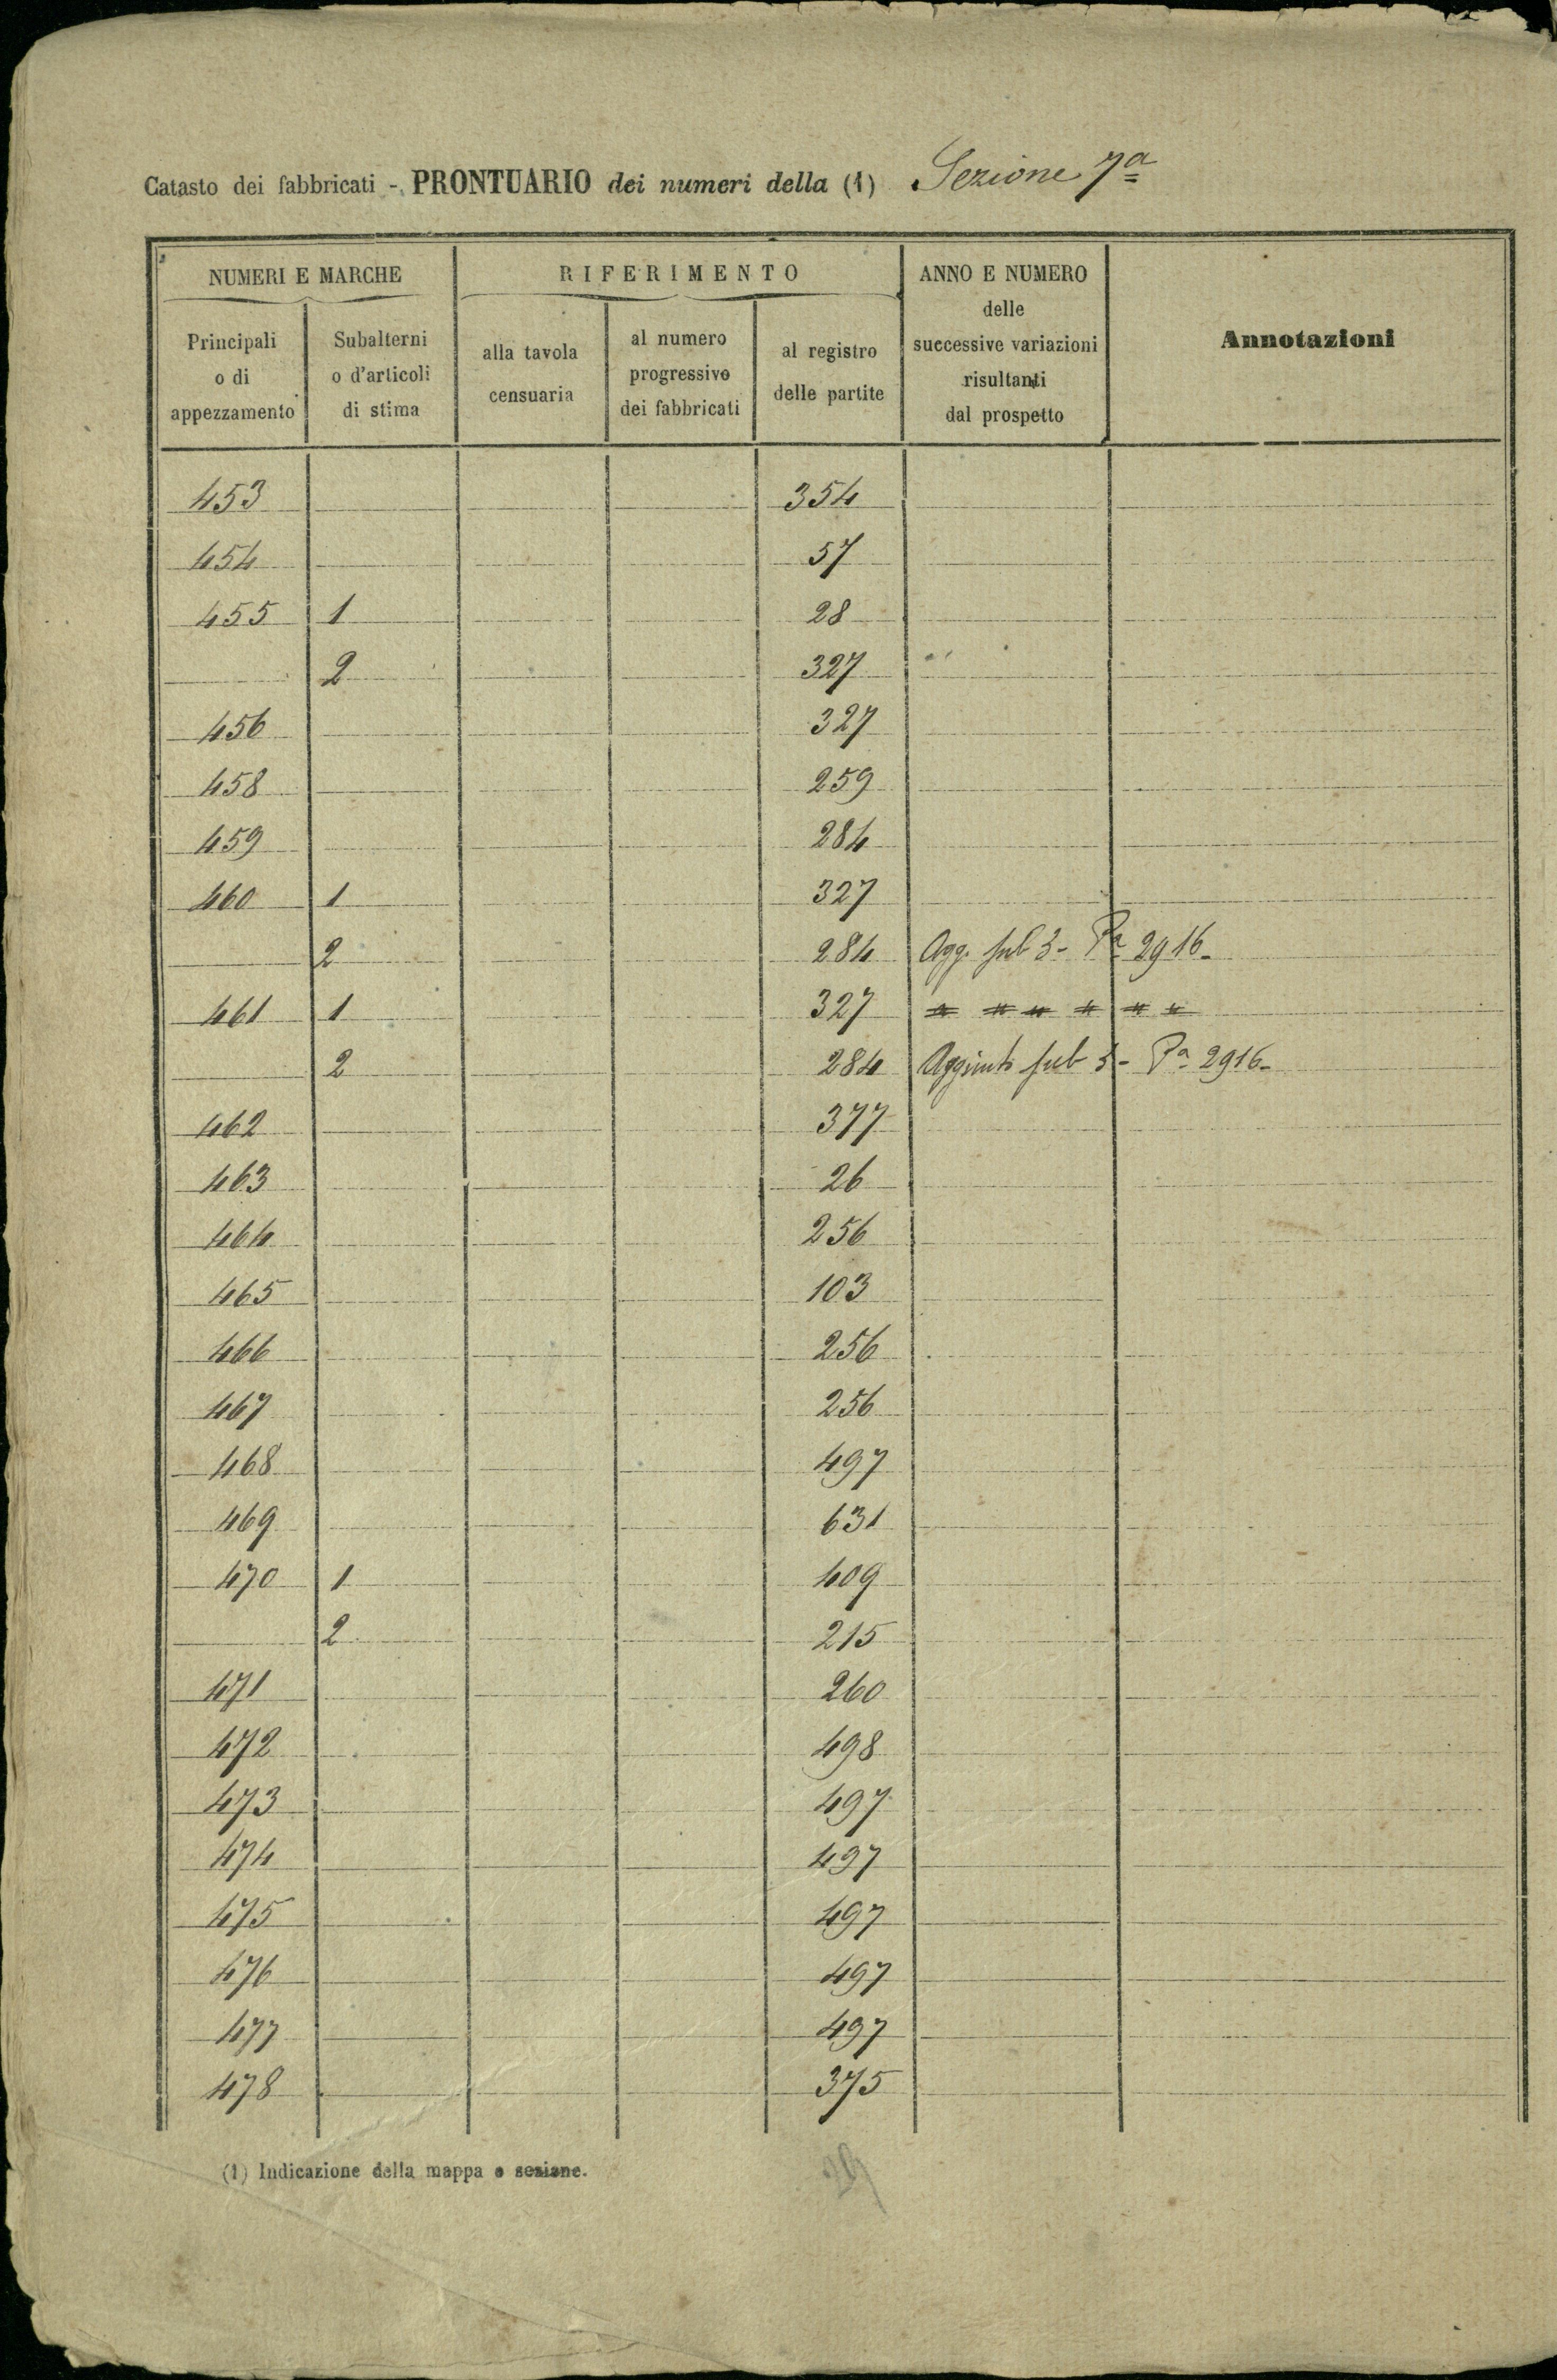 Catasto dei fabbricati - PRONTUARIO dei numeri della (1) Sezione 7ª
NUMERI E MARCHE
RIFERIMENTO
ANNO E NUMERO
delle
successive variazioni
risultanti
dal prospetto
Annotazioni
Principali
o di
appezzamento
Subalterni
o d'articoli
di stima
alla tavola
censuaria
al numero
progressivo
dei fabbricati
al registro
delle partite
453 354
454 57
455 1 28
2 327
456 327
458 259
459 284
460 1 327
2 284 Agg. sub 3 - Pª 2916 -
461 1 327
2 284 Aggiunto sub 3 - Pª 2916 -
462 377
463 26
464 256
465 103
466 256
467 256
468 497
469 631
470 1 409
2 215
471 260
472 498
473 497
474 497
475 497
476 497
477 497
478 375
(1) Indicazione della mappa o sezione.
29